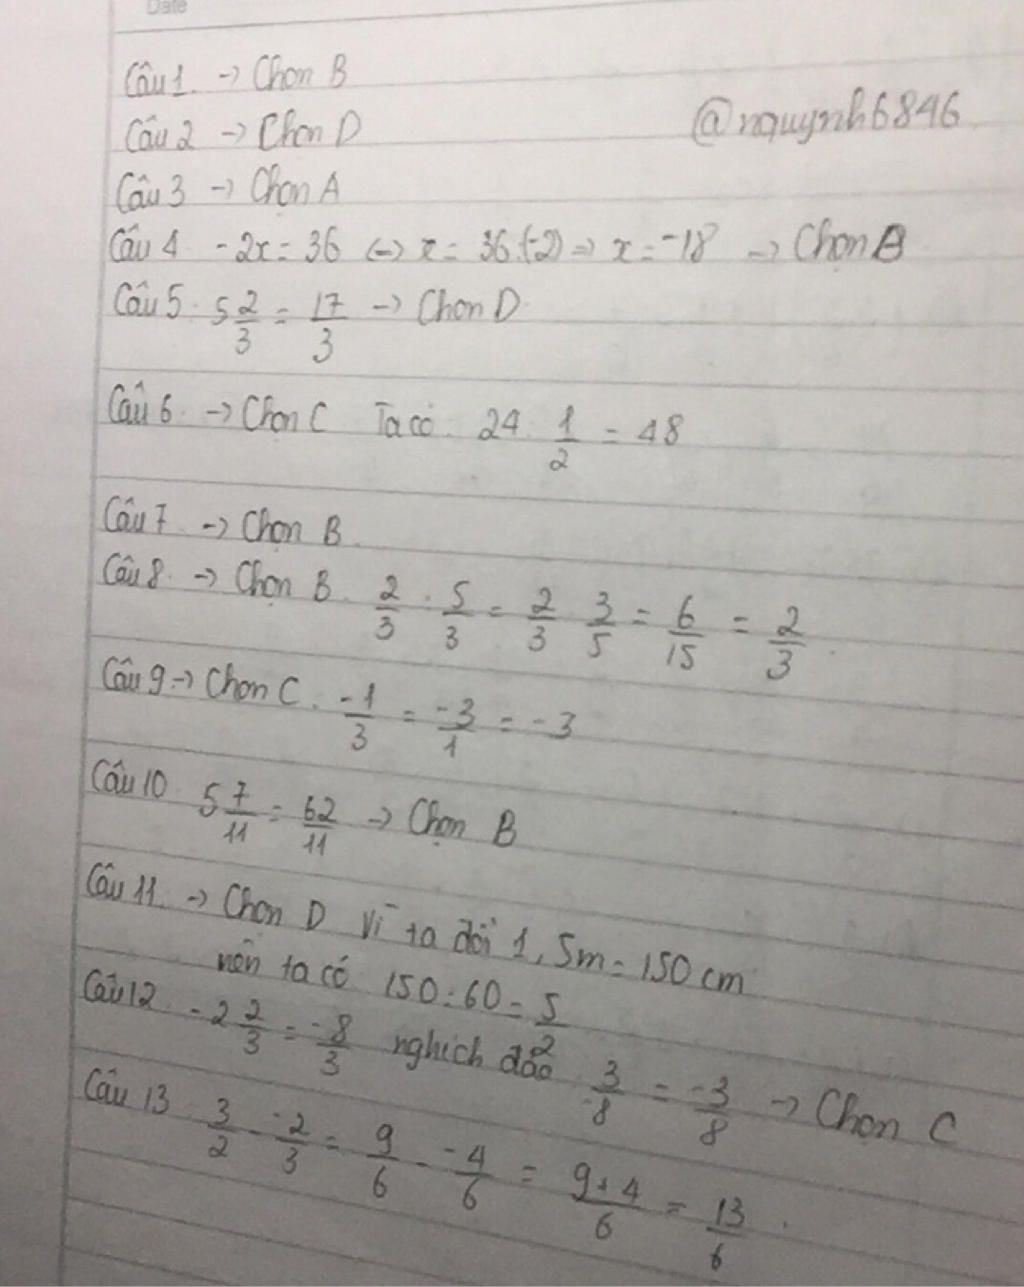 Date
Câu 1. -> Chọn B
@nquynh6846
Câu 2 -> Chọn D
Câu 3 -> Chọn A
Câu 4 -2x = 36 <-> x = 36:(-2) => x = -18 -> Chọn B
Câu 5. 5 2/3 = 17/3 -> Chọn D
Câu 6. -> Chọn C Ta có. 24 1/2 = 48
Câu 7 -> Chọn B
Câu 8. -> Chọn B. 2/3 . 5/3 = 2/3 3/5 = 6/15 = 2/3
Câu 9 -> Chọn C. -1/3 = -3/1 = -3
Câu 10 5 7/11 = 62/11 -> Chọn B
Câu 11. -> Chọn D Vì ta đổi 1,5m = 150 cm
nên ta có 150:60 = 5/2
Câu 12 -2 2/3 = -8/3 nghịch đảo 3/-8 = -3/8 -> Chọn C
Câu 13 3/2 - -2/3 = 9/6 - -4/6 = 9+4/6 = 13/6.